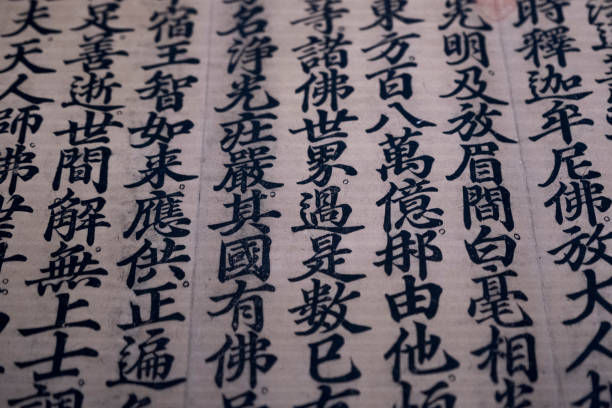 時釋迦牟尼佛放大人
光明及放眉間白毫相光
東方百八萬億那由他恒
等諸佛世界過是數已有
名淨光庄嚴其國有佛
宿王智如來應供正遍
足善逝世間解無上士調
夫天人師佛世